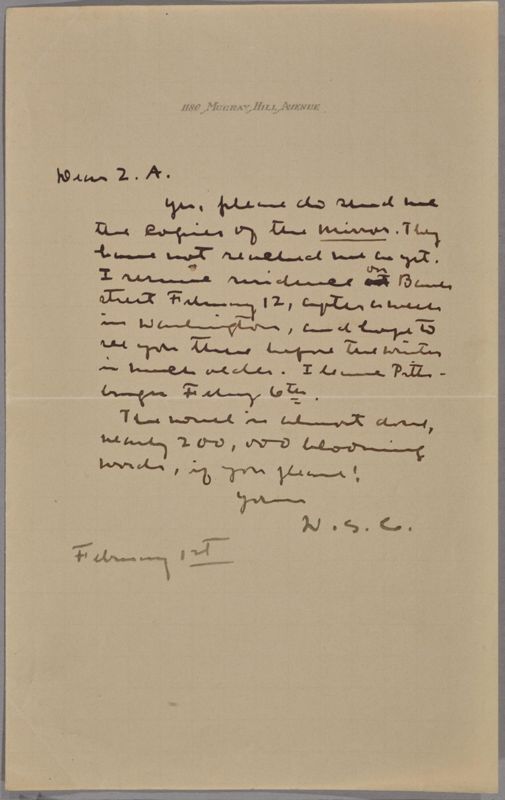 1180 Murray Hill Avenue
Dear Z. A.
Yes, please do send me
the copies of the Mirror. They
have not reached me as yet.
I resume residence at on Bank
street February 12, after a week
in Washington, and hope to
see you there before the winter
is much older. I leave Pitts-
burgh Febry 6th.
The novel is almost done,
nearly 200,000 blooming
words, if you please!
Yours
W. S. C.
February 1st